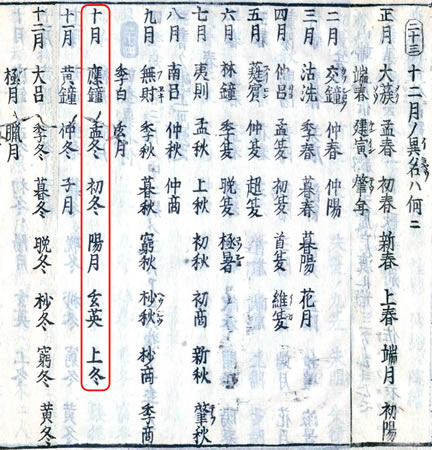 二十三 十二月ノ異名ハ何ニ
正月 大簇 孟春 初春 新春 上春 端月 初陽
端春 建寅 肇年
二月 交鐘 仲春 仲陽
三月 沽洗 季春 暮春 暮陽 花月
四月 仲呂 孟夏 初夏 首夏 維夏
五月 蕤賓 仲夏 超夏
六月 林鐘 季夏 晩夏 極暑
七月 夷則 孟秋 上秋 初秋 初商 新秋 肇秋
八月 南呂 仲秋 仲商
九月 無射 季秋 暮秋 窮秋 杪秋 杪商 季商
季白 玄月
十月 應鐘 孟冬 初冬 陽月 玄英 上冬
十一月 黄鐘 仲冬 子月
十二月 大呂 季冬 暮冬 晩冬 杪冬 窮冬 黄冬
極月 臘月